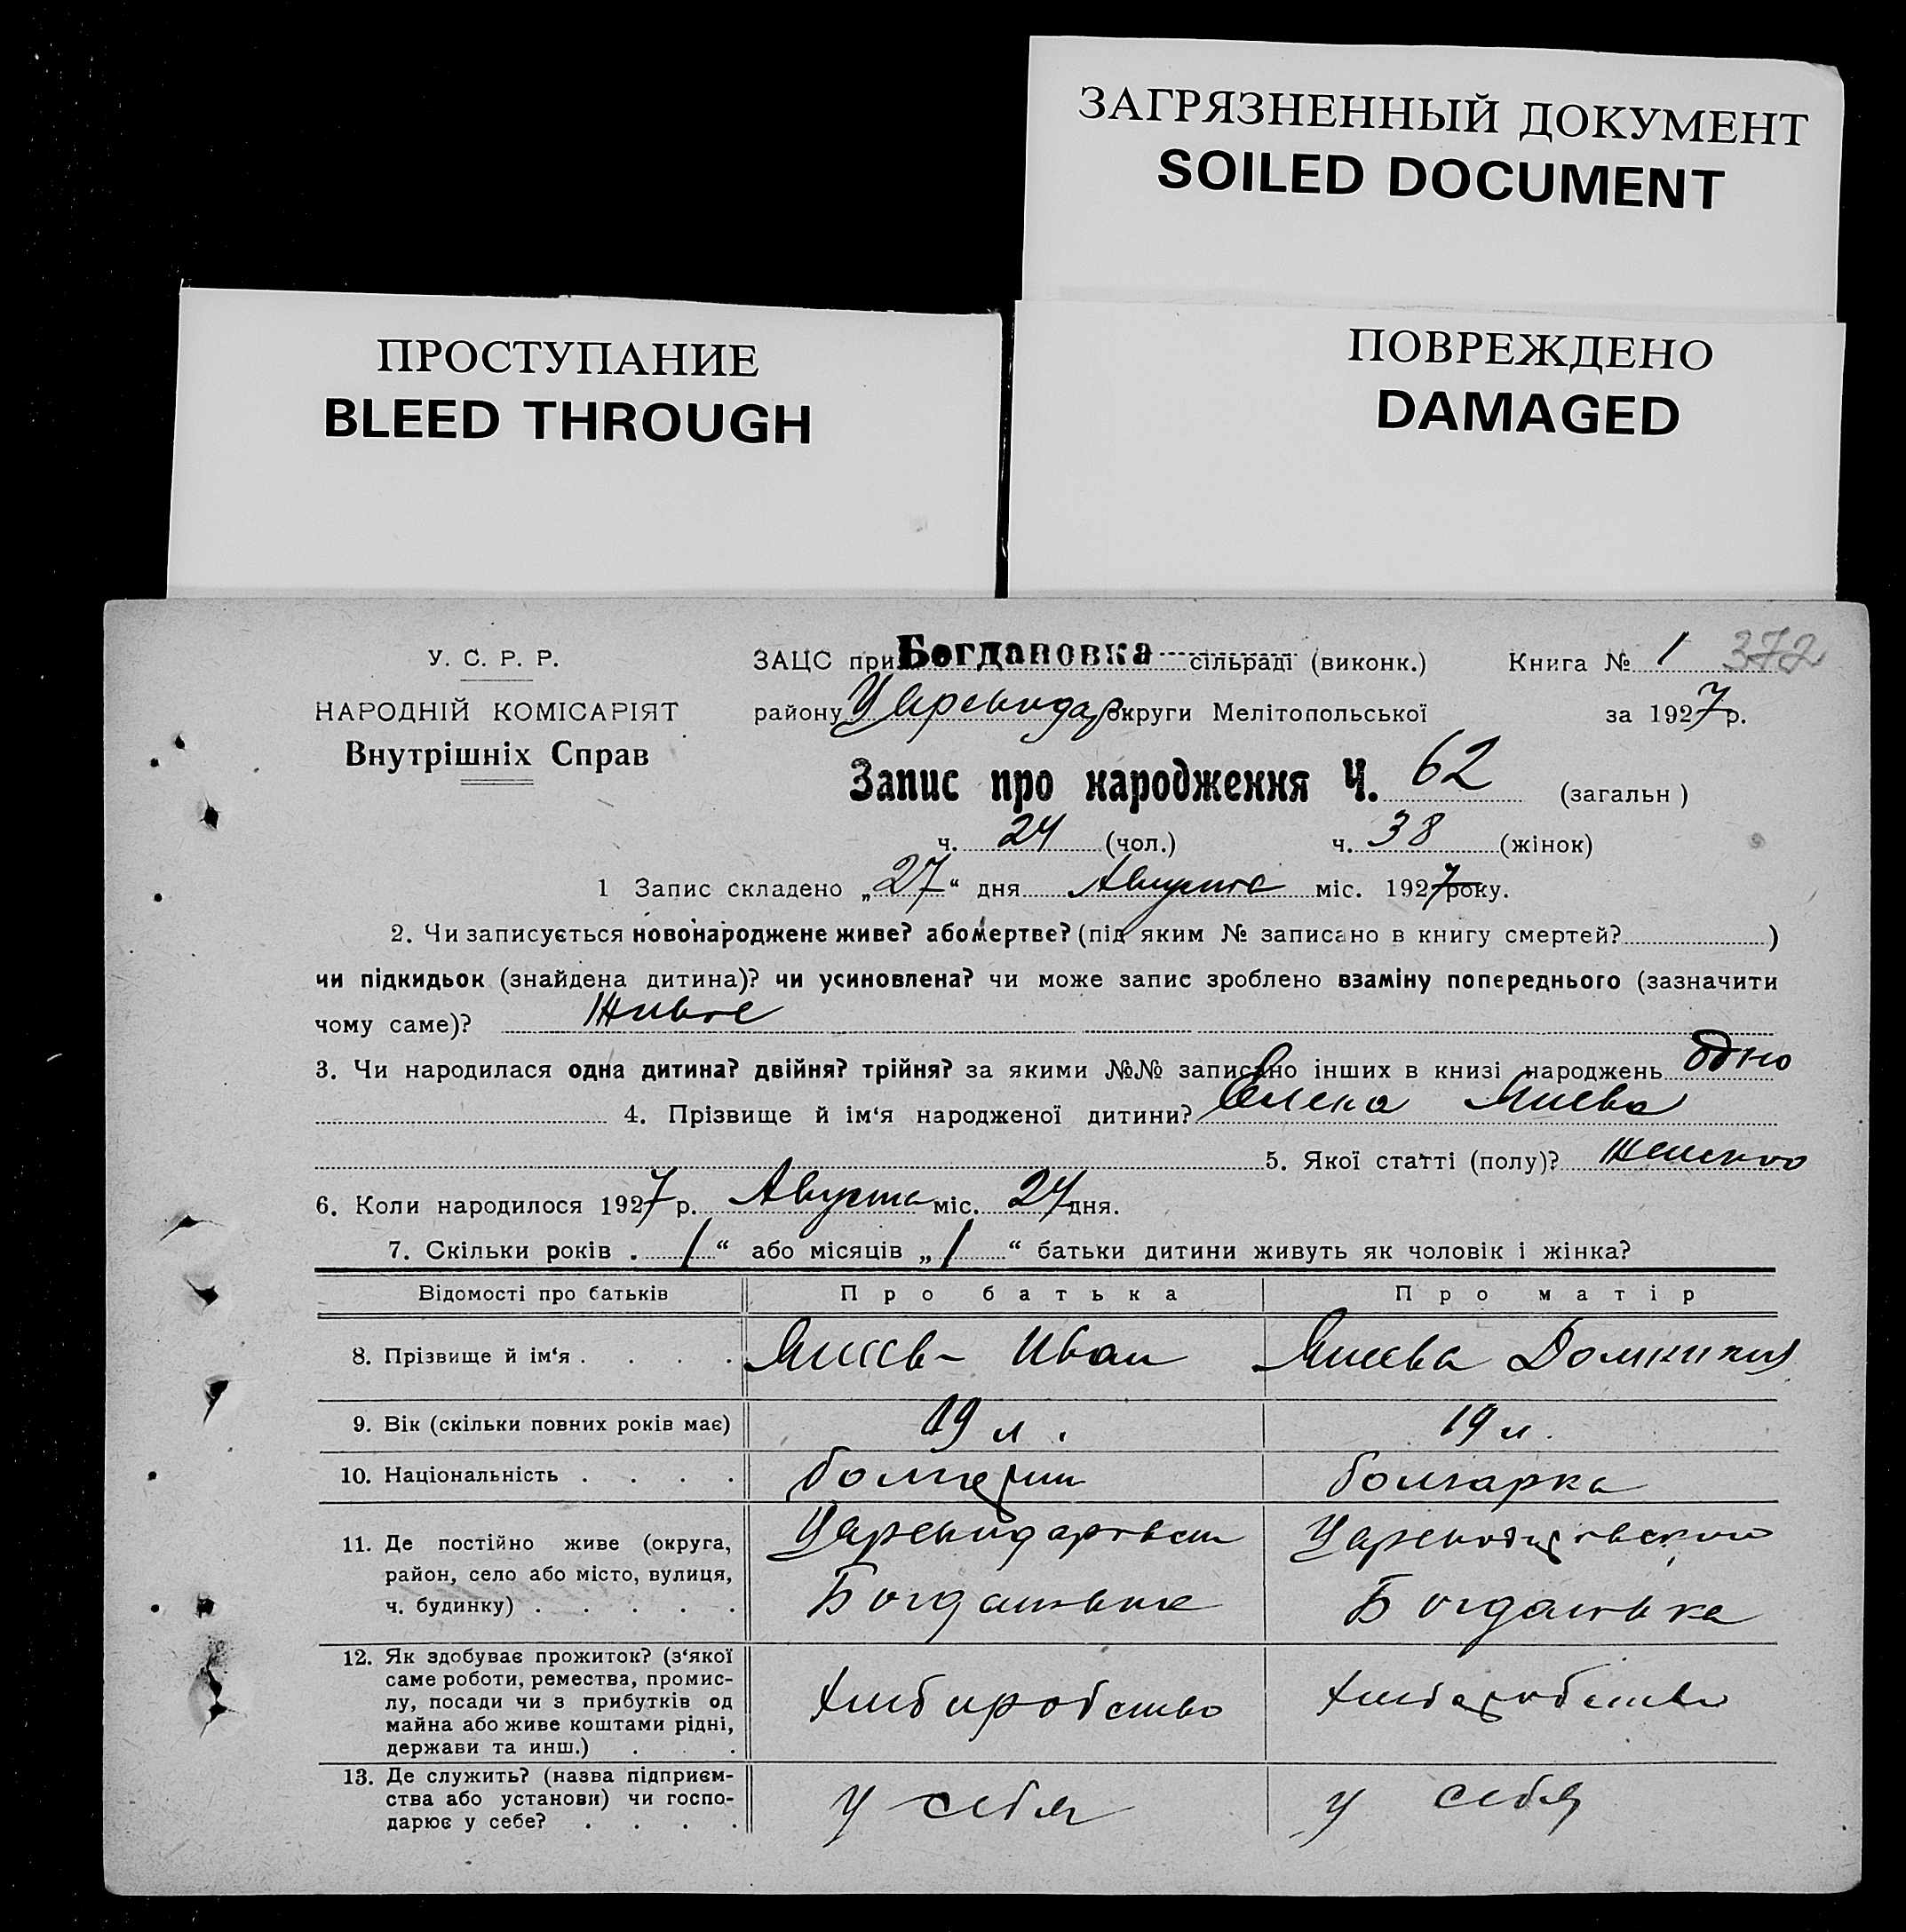 ЗАГРЯЗНЕННЫЙ ДОКУМЕНТ
SOILED DOCUMENT
ПРОСТУПАНИЕ
BLEED THROUGH
ПОВРЕЖДЕНО
DAMAGED
У. С. Р. Р.
НАРОДНІЙ КОМІСАРІЯТ
Внутрішніх Справ
ЗАЦС при Богдановка сільраді (виконк.) Книга № 1 372
району Царенкодар округи Мелітопольської за 1927 р.
Запис про народження Ч. 62 (загальн)
ч. 24 (чол.) ч. 38 (жінок)
1 Запис складено „27“ дня Августа міс. 1927 року.
2. Чи записується новонароджене живе? або мертве? (під яким № записано в книгу смертей? )
чи підкидьок (знайдена дитина)? чи усиновлена? чи може запис зроблено взаміну попереднього (зазначити
чому саме)? Живое
3. Чи народилася одна дитина? двійня? трійня? за якими №№ записано інших в книзі народжень одно
4. Прізвище й ім‘я народженої дитини? Елена
5. Якої статті (полу)? женского
6. Коли народилося 1927 р. Августа міс. 24 дня.
7. Скільки років . / “ або місяців „ / “ батьки дитини живуть як чоловік і жінка?
Відомості про батьків Про батька Про матір
8. Прізвище й ім‘я . . . . Иван
9. Вік (скільки повних років має) 19 л. 19 л.
10. Національність . . . . болгарин болгарка
11. Де постійно живе (округа,
район, село або місто, вулиця,
ч. будинку) . . . . . Богдановка Богдановка
12. Як здобуває прожиток? (з‘якої
саме роботи, ремества, промис-
лу, посади чи з прибутків од
майна або живе коштами рідні,
держави та инш.) . . . хлиборобство хлеборобство
13. Де служить? (назва підприєм-
ства або установи) чи госпо-
дарює у себе? . . . . у себя у себя